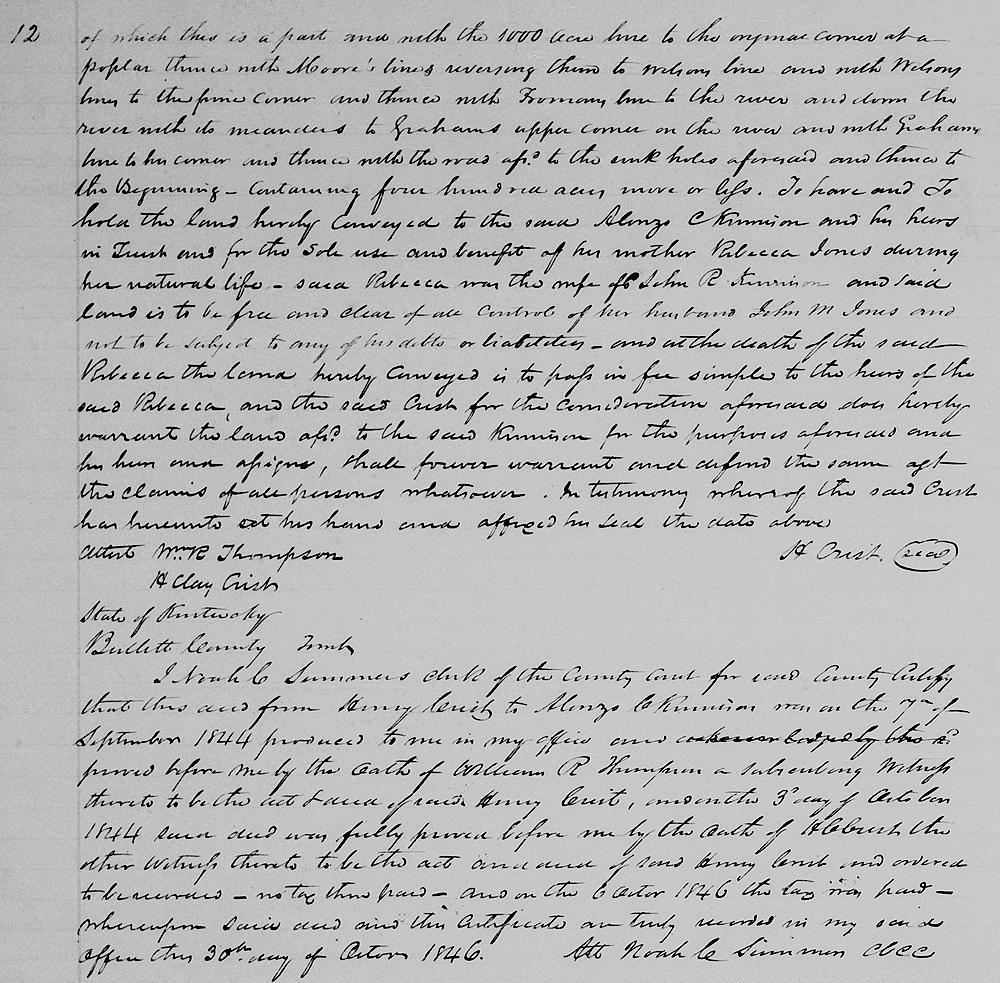 12
of which this is a part and with the 1000 acre line to the original corner at a
poplar thence with Moore's lines reversing them to Wilsons line and with Wilsons
lines to the pine corner and thence with Fromans line to the river and down the
river with its meanders to Grahams upper corner on the river and with Grahams
line to his corner and thence with the road afsd to the sink holes aforesaid and thence to
the Beginning - Containing four hundred acres more or less. To have and To
hold the land hereby Conveyed to the said Alonzo C Kinnison and his heirs
in Trust and for the Sole use and benefit of his mother Rebecca Jones during
her natural life - said Rebecca was the wife of John R Kinnison and said
land is to be free and clear of all control of her husband John M Jones and
not to be subject to any of his debts or liabilities - and at the death of the said
Rebecca the land hereby Conveyed is to pass in fee simple to the heirs of the
said Rebecca, and the said Crist for the consideration aforesaid does hereby
warrant the land afsd to the said Kinnison for the purposes aforesaid and
his heirs and assigns, shall forever warrant and defend the same agt
the claims of all persons whatsoever. In testimony whereof the said Crist
has hereunto set his hand and affixed his seal the date above
Attest Wm R Thompson H Crist. (seal)
H Clay Crist
State of Kentucky
Bullitt County
I Noah C Summers clerk of the County Court for said County Certify
that this deed from Henry Crist to Alonzo C Kinnison was on the 7th of
September 1844 produced to me in my office and acknowledged by the sd
proved before me by the Oath of William R Thompson a subscribing Witness
thereto to be the act & deed of said Henry Crist, and on the 3d day of October
1844 said deed was fully proved before me by the Oath of H C Crist the
other Witness thereto to be the act and deed of said Henry Crist and ordered
to be recorded - no tax then paid - and on the 6 Octor 1846 the tax was paid -
whereupon said deed and this Certificate are truly recorded in my said
office this 30th day of Octor 1846. Att Noah C Summers CBCC